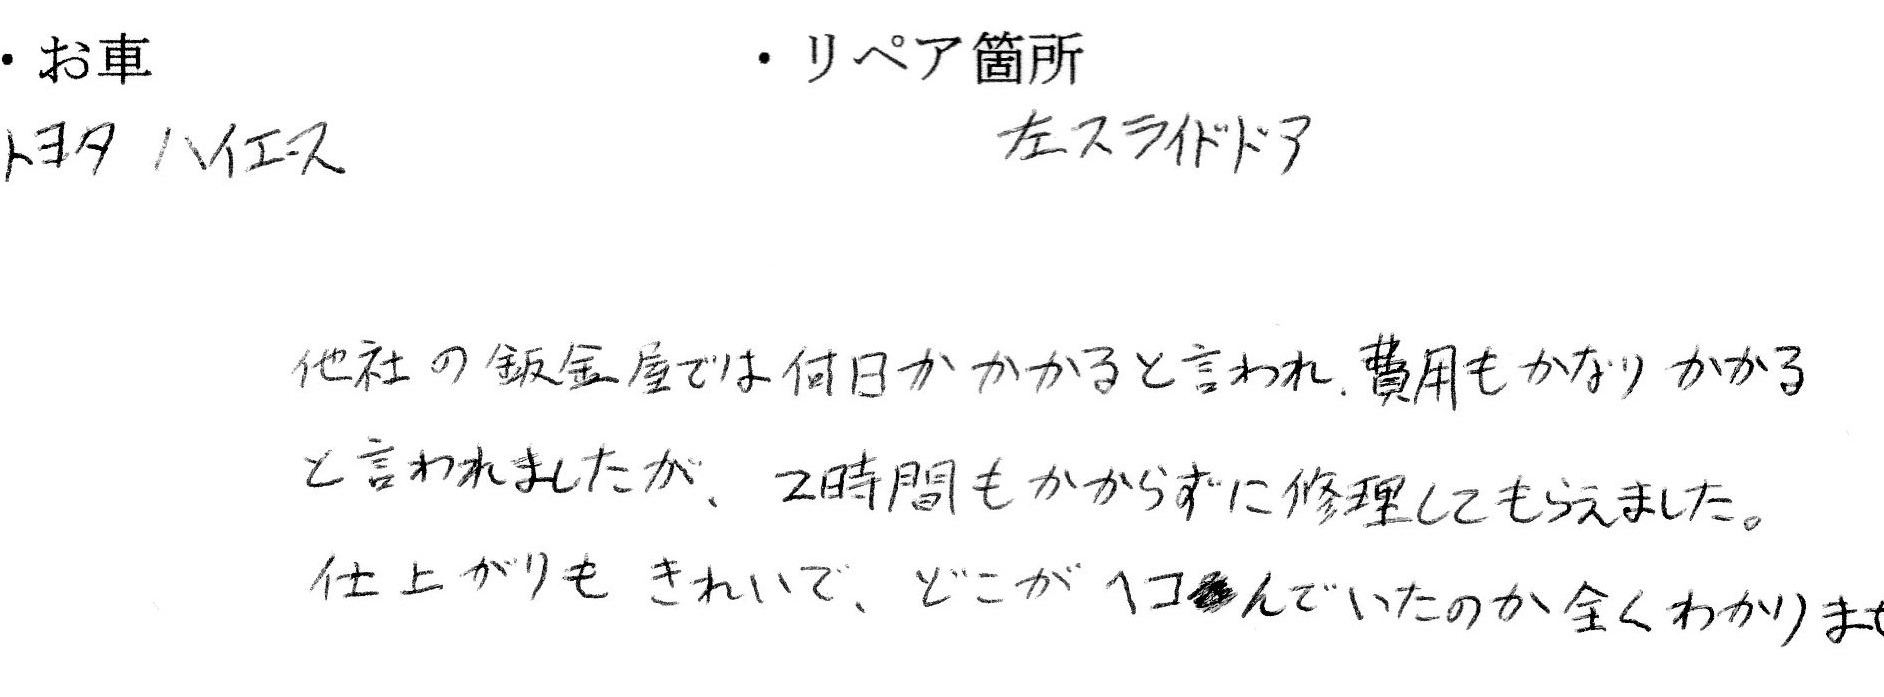 ・お車 ・リペア箇所
トヨタ ハイエース 左スライドドア
他社の鈑金屋では何日かかかると言われ、費用もかなりかかる
と言われましたが、2時間もかからずに修理してもらえました。
仕上がりもきれいで、どこがヘコんでいたのか全くわかりませ